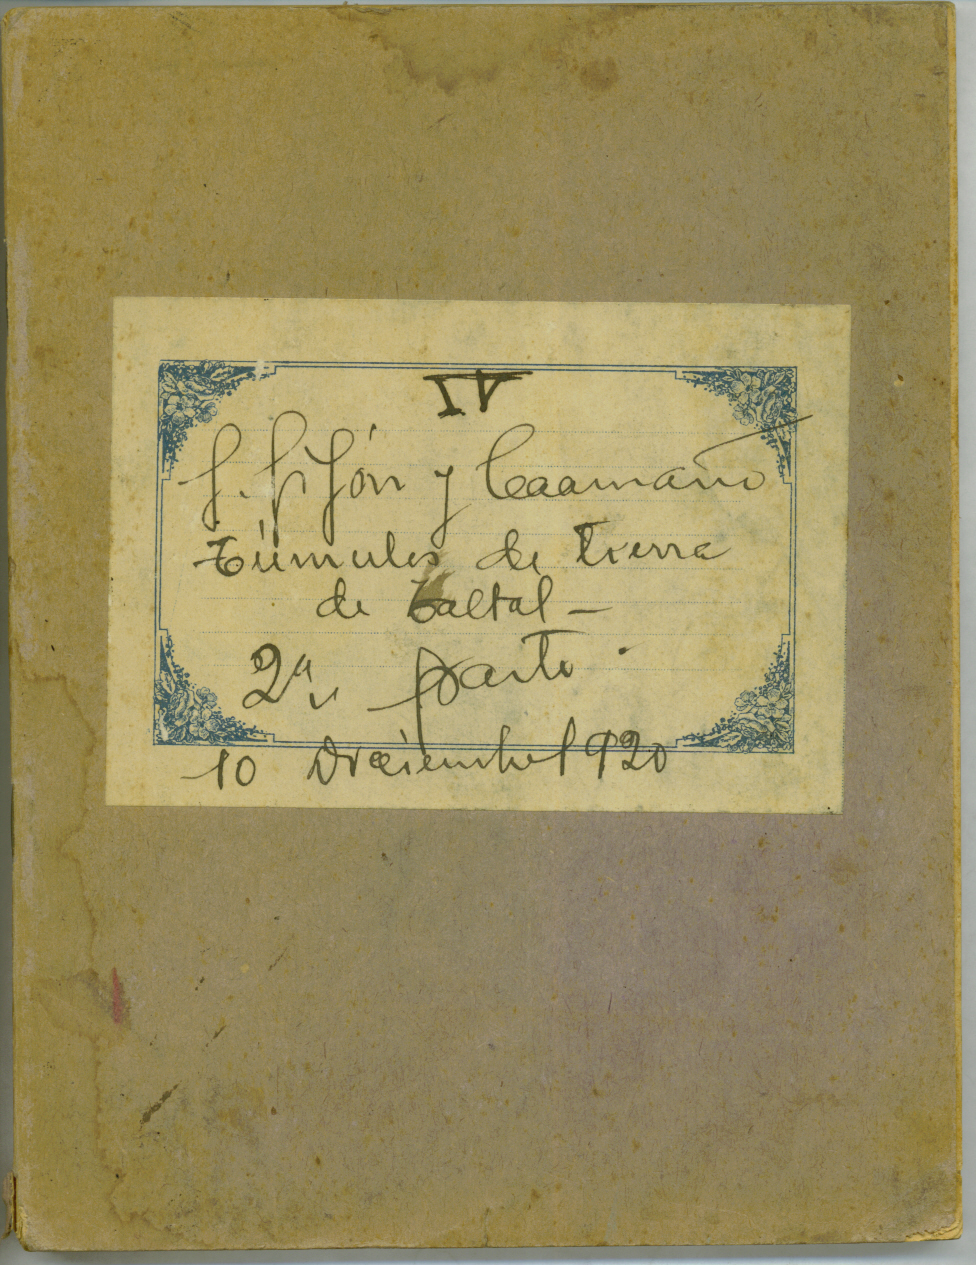 IV
J. Jijón y Caamaño
Túmulos de tierra
de Taltal –
2ª parte.
10 Diciembre 1920